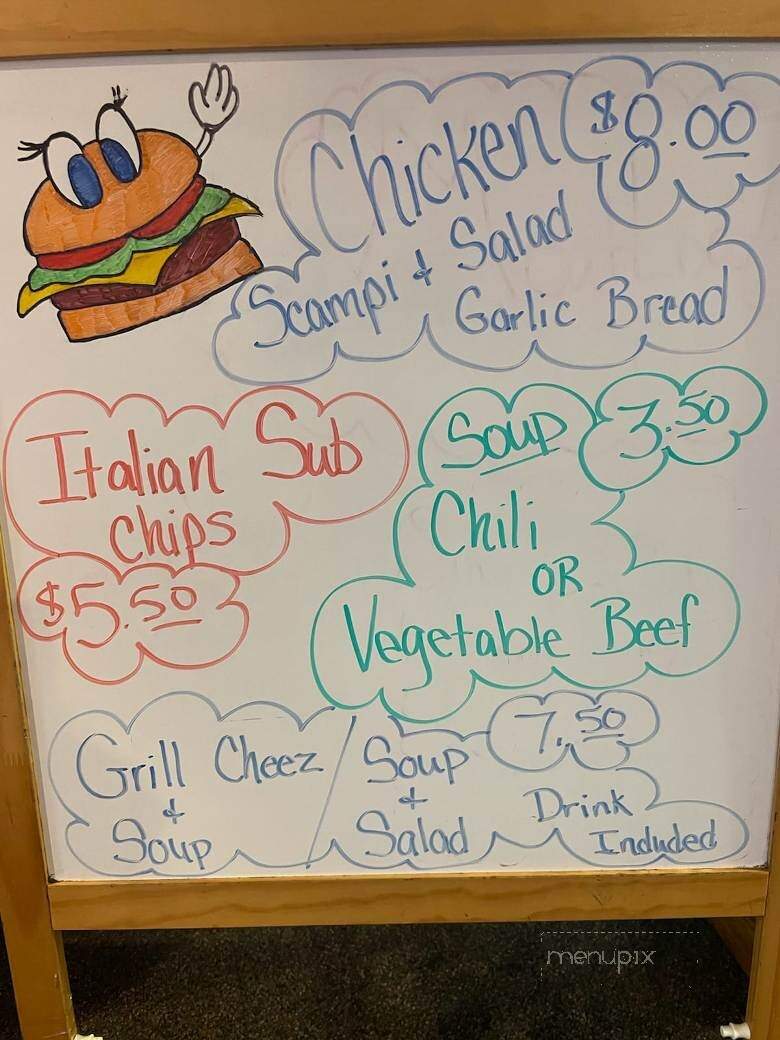 Chicken $8.00
Scampi & Salad
Garlic Bread
Italian Sub
chips
$5.50
Soup 3.50
Chili
OR
Vegetable Beef
Grill Cheez
&
Soup
/ Soup
&
Salad
7.50
Drink
Included
menupix